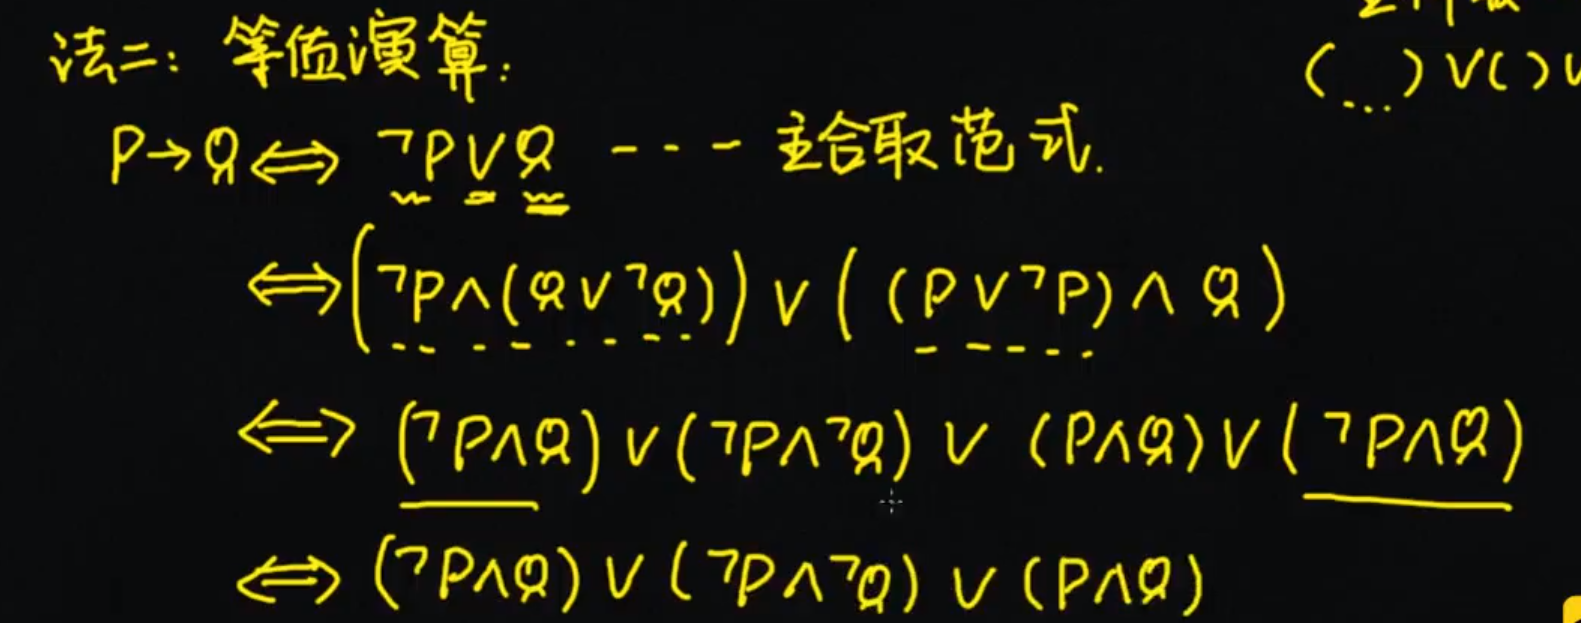 法二：等值演算：
( … ) ∨ ( ) ∨
P→Q ⇔ ¬P∨Q ---- 主合取范式.
⇔ (¬P∧(Q∨¬Q)) ∨ ((P∨¬P)∧Q)
⇔ (¬P∧Q)∨(¬P∧¬Q) ∨ (P∧Q)∨(¬P∧Q)
⇔ (¬P∧Q)∨(¬P∧¬Q)∨(P∧Q)